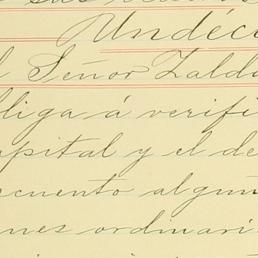 Undéci
l Señor Zaldu
bliga á verifi
apital y el de
scuento algun
ones ordinari